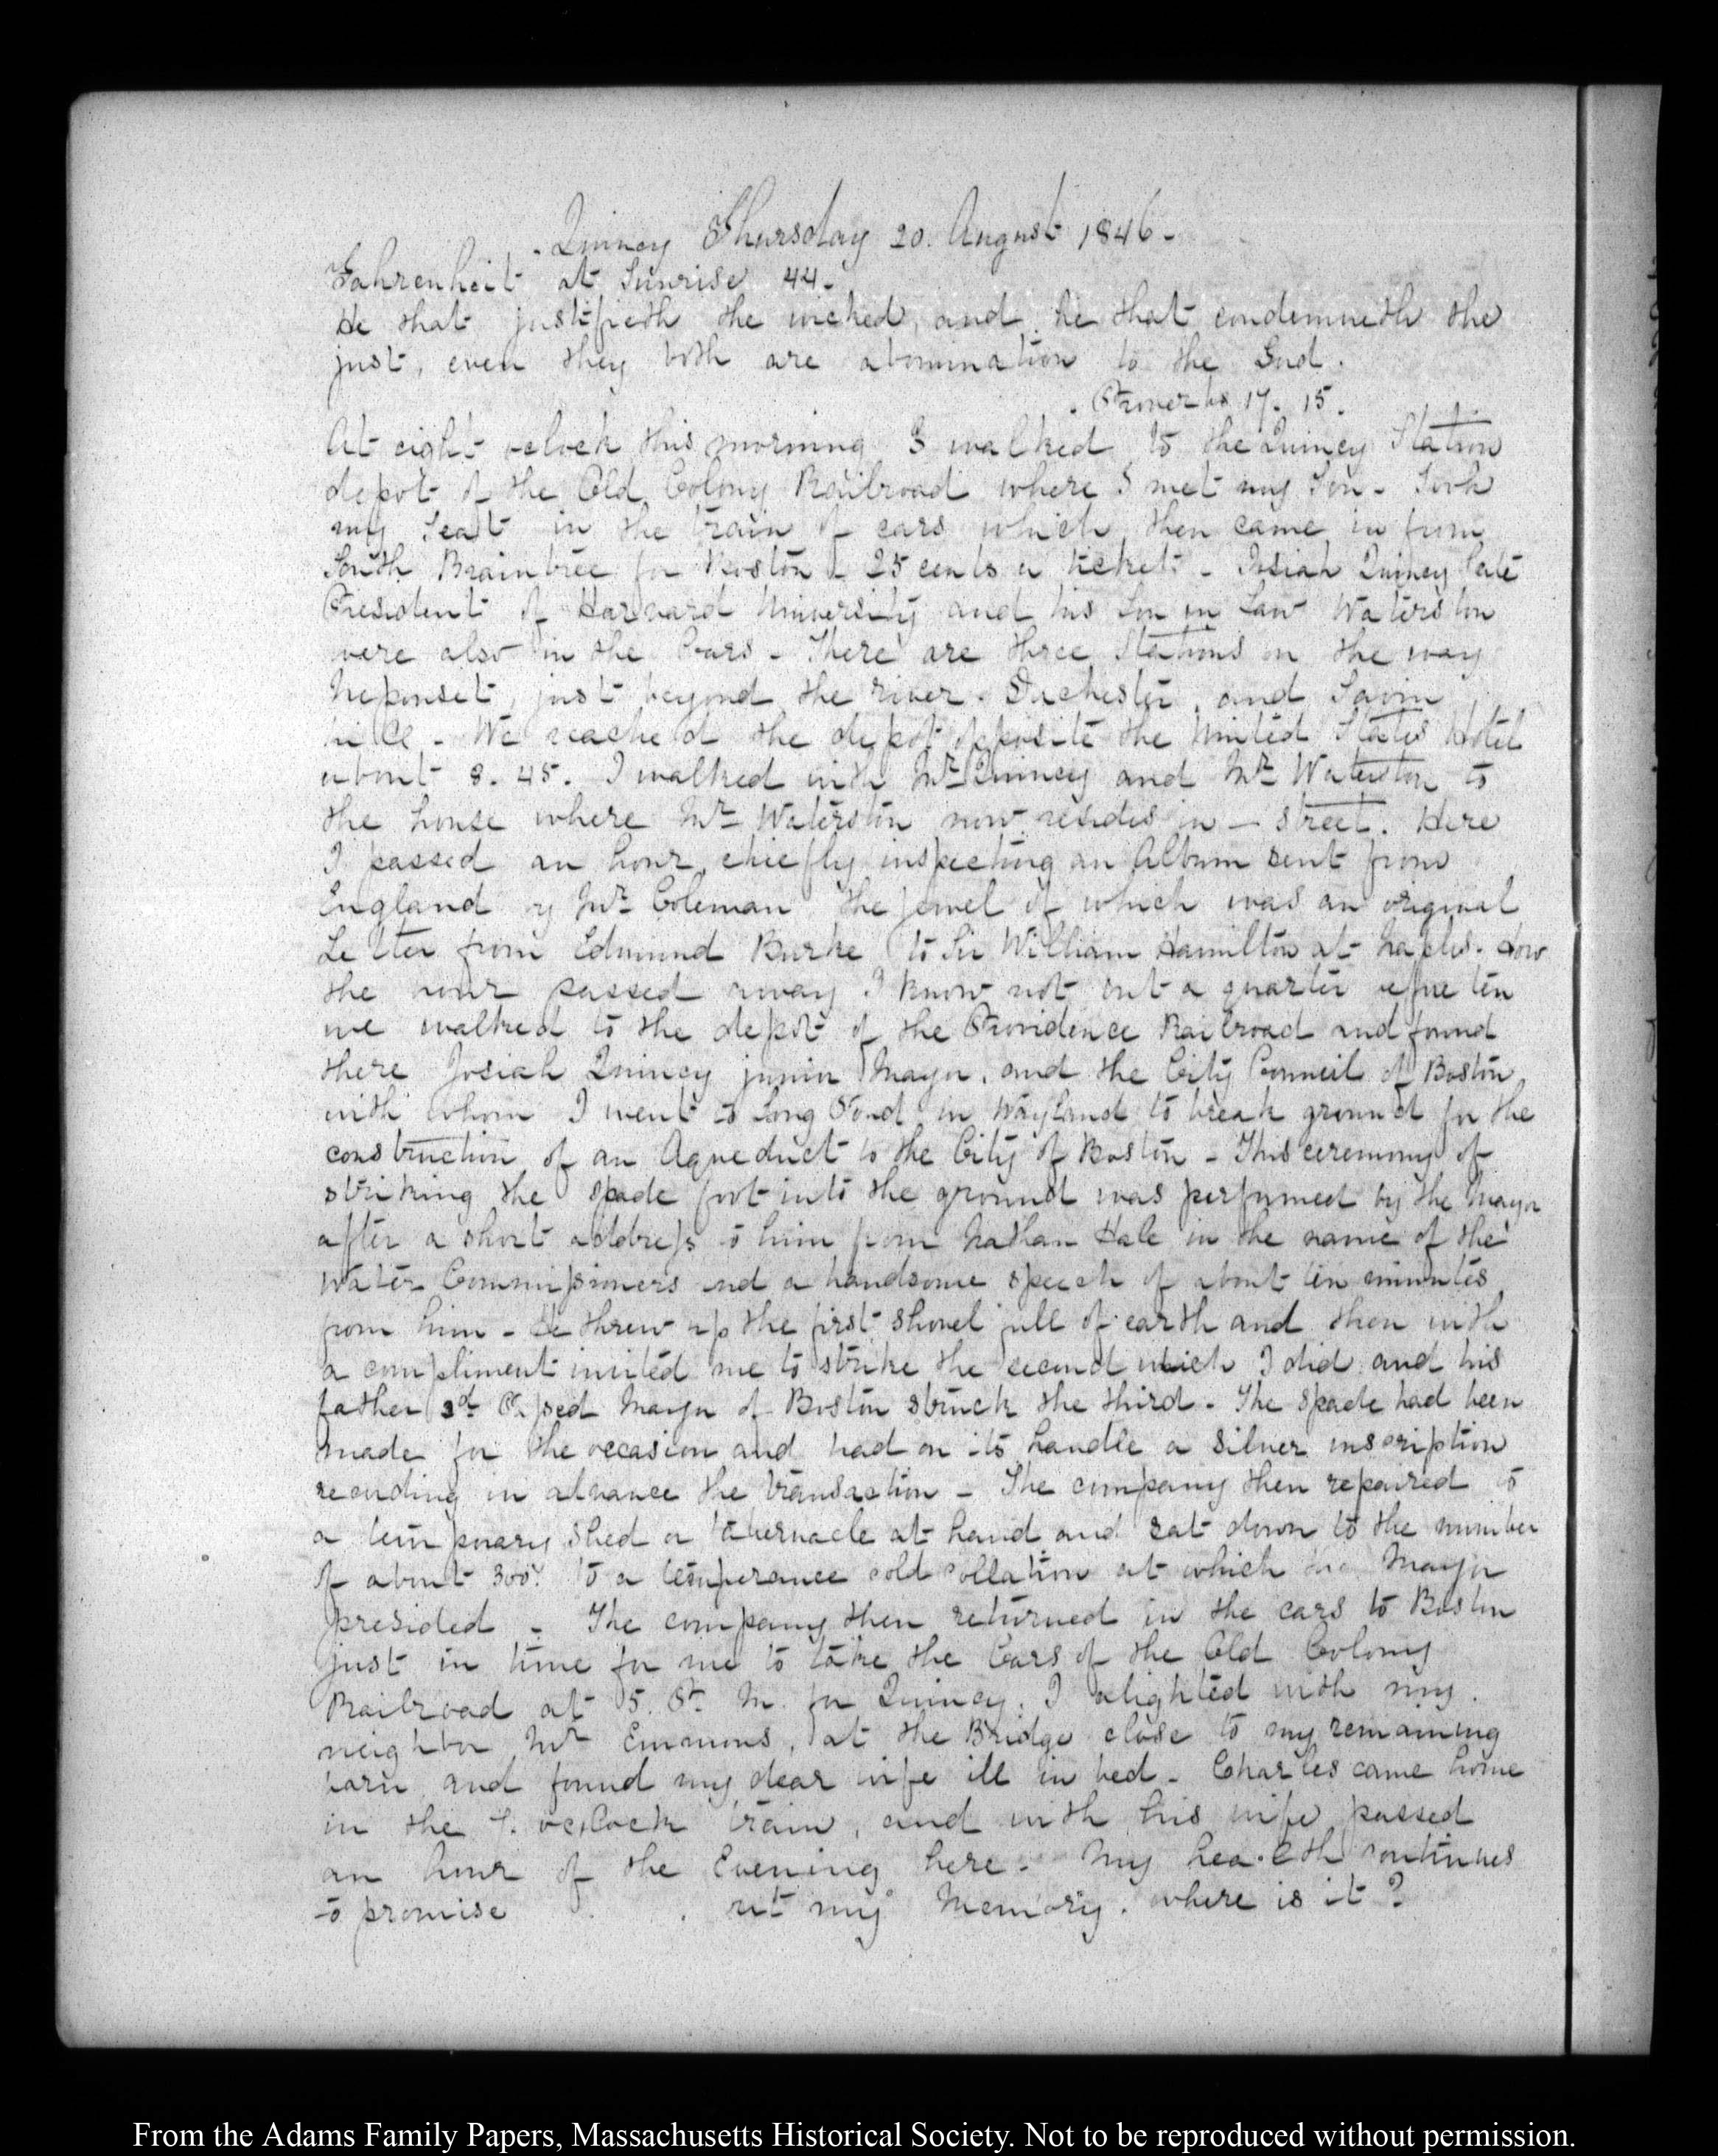 Quincy Thursday 20. August 1846.
Fahrenheit at Sunrise 44.
He that justifieth the wicked, and he that condemneth the
just, even they both are abomination to the Lord.
Proverbs 17. 15.
At eight oclock this morning I walked to the Quincy Station
depot of the Old Colony Railroad where I met my Son - Took
my Seat in the train of cars which then came in from
South Braintree for Boston - 25 cents a ticket - Josiah Quincy late
President of Harvard University and his Son in Law Waterston
were also in the Cars - There are three Stations on the way
Neponset, just beyond the river - Dorchester, and Savin
hill - We reached the depot opposite the United States Hotel
about 8. 45. I walked with Mr Quincy and Mr Waterston to
the house where Mr Waterston now resides in — street. Here
I passed an hour, chiefly inspecting an Album sent from
England by Mr Coleman the jewel of which was an original
Letter from Edmund Burke to Sir William Hamilton at Naples. How
the hour passed away I know not but a quarter before ten
we walked to the depot of the Providence Railroad and found
there Josiah Quincy junior Mayor, and the City Council of Boston
with whom I went to Long Pond in Wayland to break ground for the
construction of an Aqueduct to the City of Boston - This ceremony of
striking the spade foot into the ground was performed by the Mayor
after a short address to him from Nathan Hale in the name of the
Water Commissioners and a handsome speech of about ten minutes
from him - He threw up the first shovel full of earth and then with
a compliment invited me to strike the second which I did and his
father Mayor of Boston struck the third - The spade had been
made for the occasion and had on its handle a silver inscription
recording in advance the transaction - The company then repaired to
a temporary shed or tabernacle at hand and sat down to the number
of about 300. to a temperance cold collation at which the Mayor
presided - The company then returned in the cars to Boston
just in time for me to take the Cars of the Old Colony
Railroad at 5. P. M. for Quincy. I alighted with my
neighbor Mr Emmons, at the Bridge close to my remaining
barn and found my dear wife ill in bed - Charles came home
in the 7. oclock train, and with his wife passed
an hour of the Evening here - My health continues
to promise but my Memory. where is it?
From the Adams Family Papers, Massachusetts Historical Society. Not to be reproduced without permission.